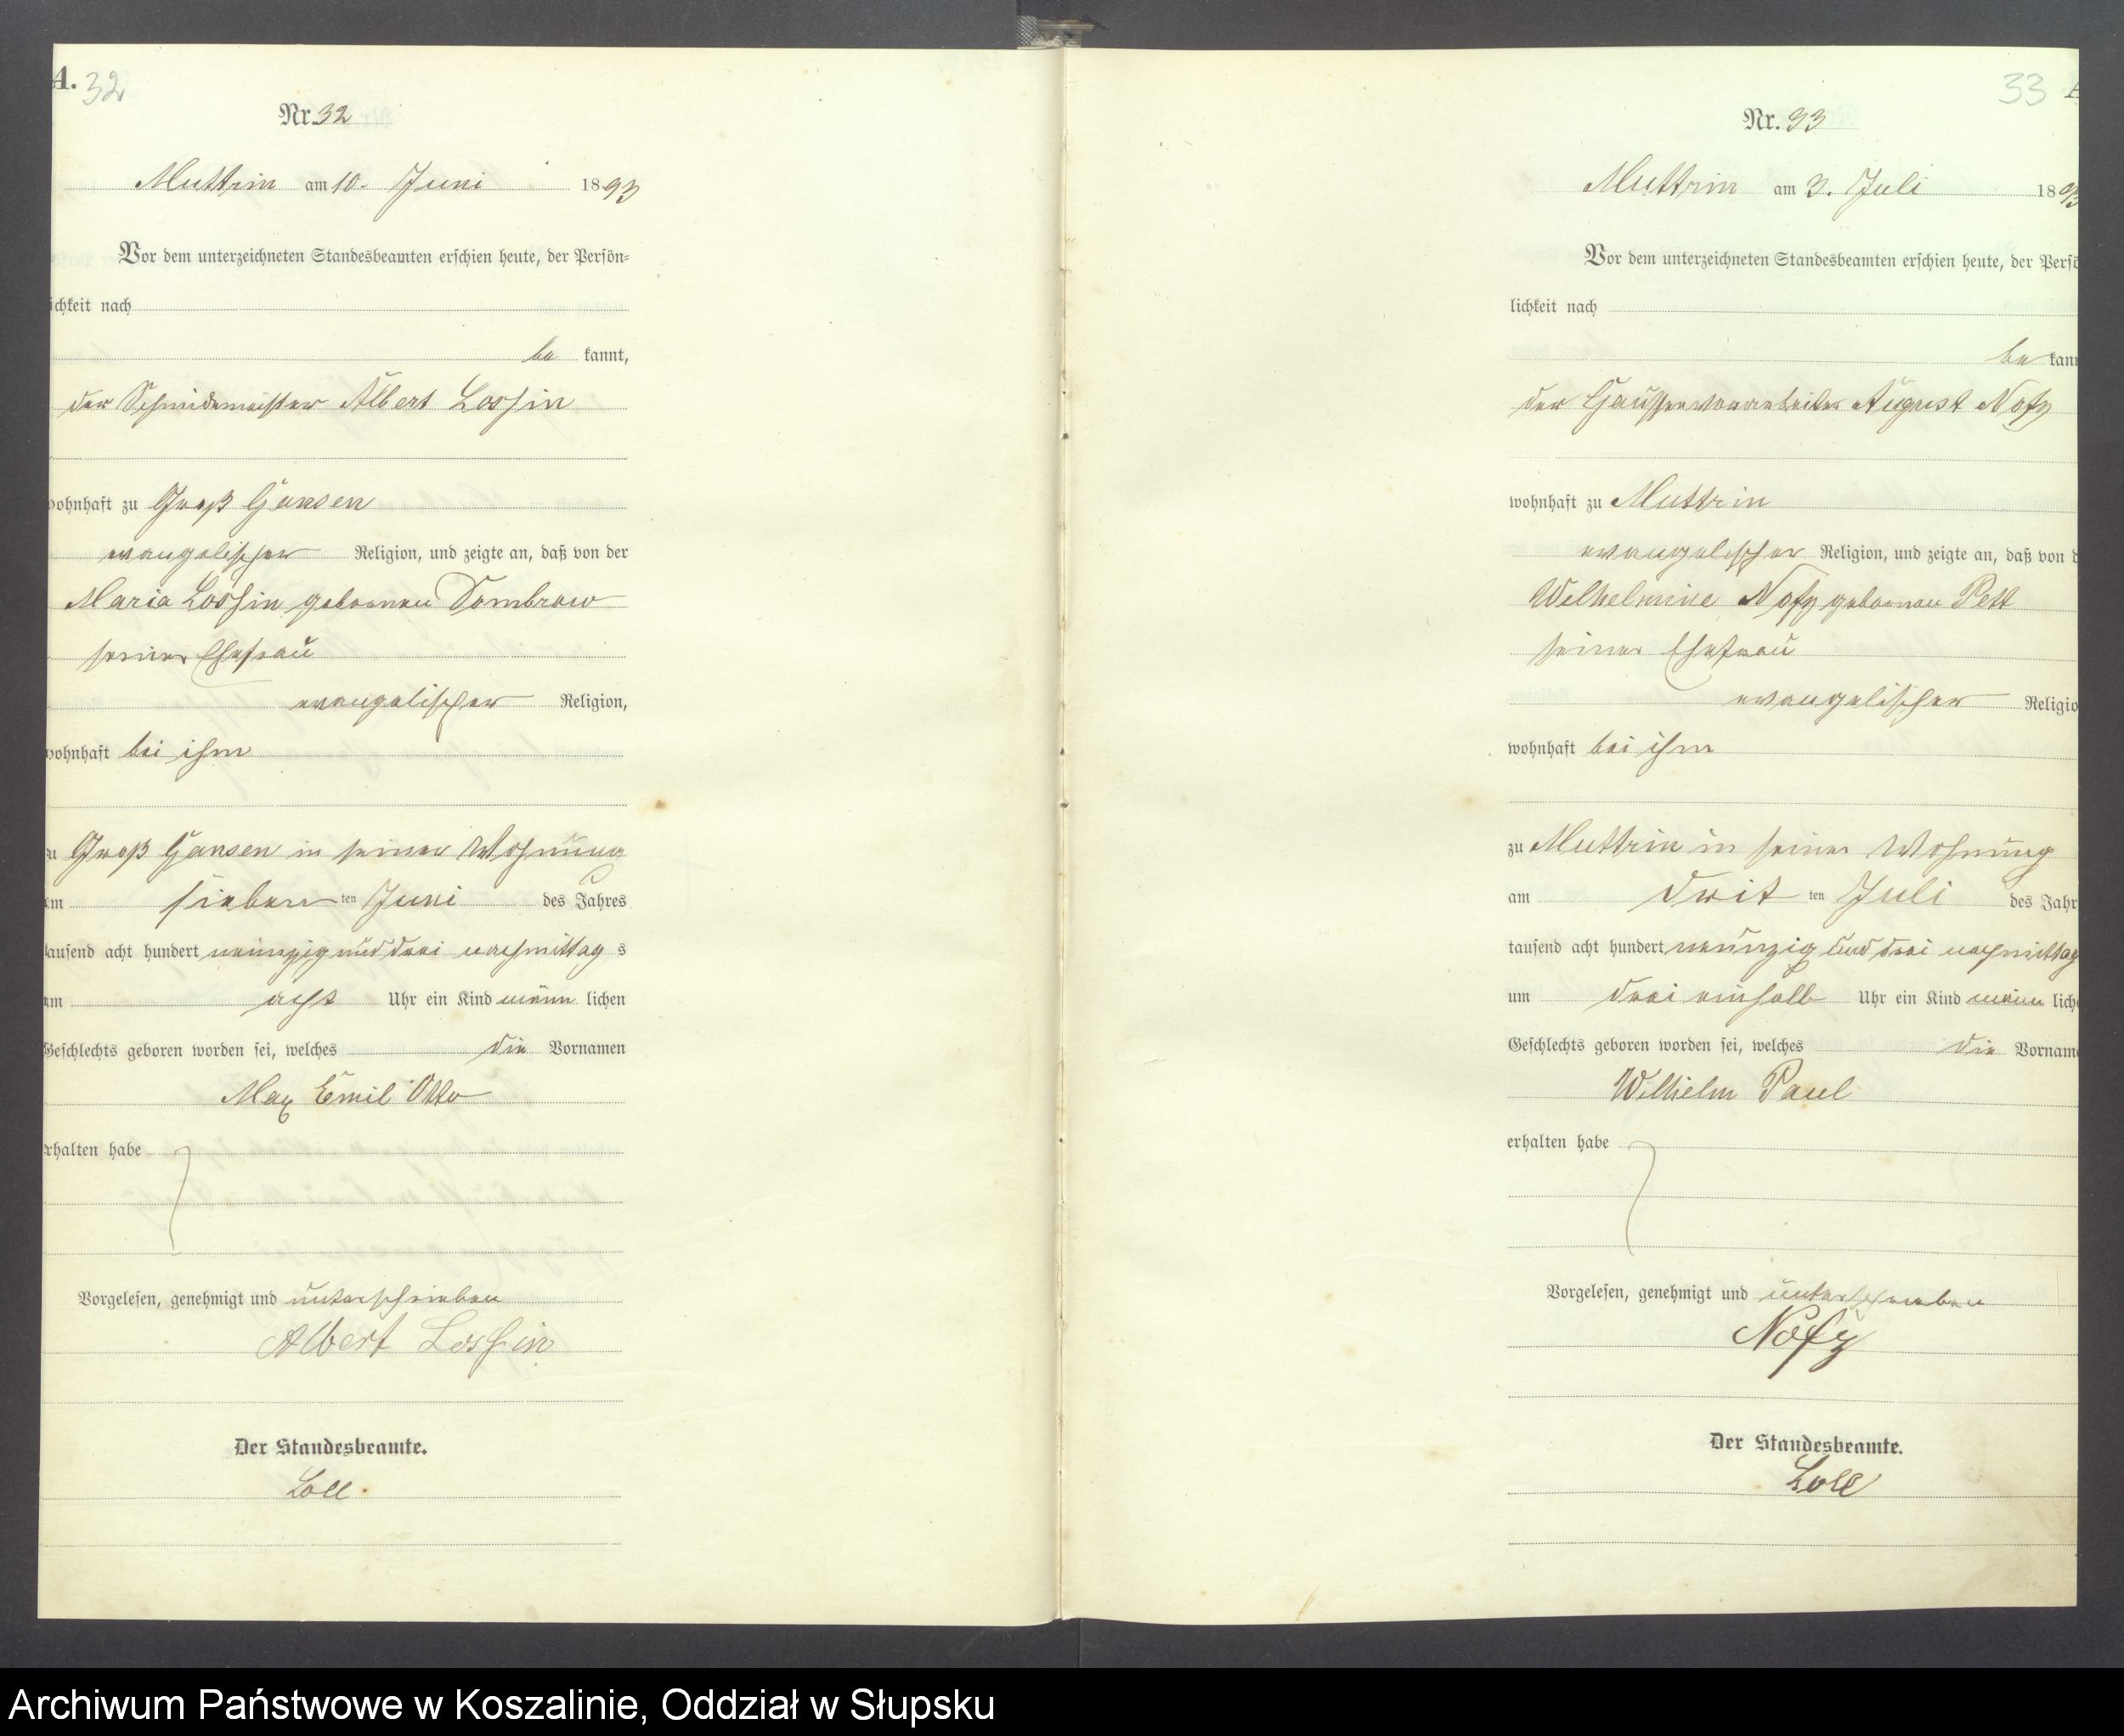 A. 32
Nr. 32
Muttrin am 10. Juni 1893
Vor dem unterzeichneten Standesbeamten erschien heute, der Persön-
ichkeit nach
be kannt,
der Schmidemeister Albert Lossin
wohnhaft zu Groß Gansen
evangelischer Religion, und zeigte an, daß von der
Maria Lossin geborenen Dombrow
seiner Ehefrau
evangelischer Religion,
wohnhaft bei ihm
zu Groß Gansen in seiner Wohnung
am sieben ten Juni des Jahres
tausend acht hundert neunzig und drei nachmittag s
um acht Uhr ein Kind männ lichen
Geschlechts geboren worden sei, welches die Vornamen
Max Emil Otto
erhalten habe
Vorgelesen, genehmigt und unterschrieben
Albert Lossin
Der Standesbeamte.
Loll
33
Nr. 33
Muttrin am 3. Juli 1893
Vor dem unterzeichneten Standesbeamten erschien heute, der Persö
lichkeit nach
be kann
der August Notz
wohnhaft zu Muttrin
evangelischer Religion, und zeigte an, daß von d
Wilhelmine Notz geborenen Pett
seiner Ehefrau
evangelischer Religio
wohnhaft bei ihm
zu Muttrin in seiner Wohnung
am drit ten Juli des Jahr
tausend acht hundert neunzig und drei nachmittag
um drei einhalb Uhr ein Kind männ lich
Geschlechts geboren worden sei, welches die Vorname
Wilhelm Paul
erhalten habe
Vorgelesen, genehmigt und unterschrieben
Notz
Der Standesbeamte.
Loll
Archiwum Państwowe w Koszalinie, Oddział w Słupsku